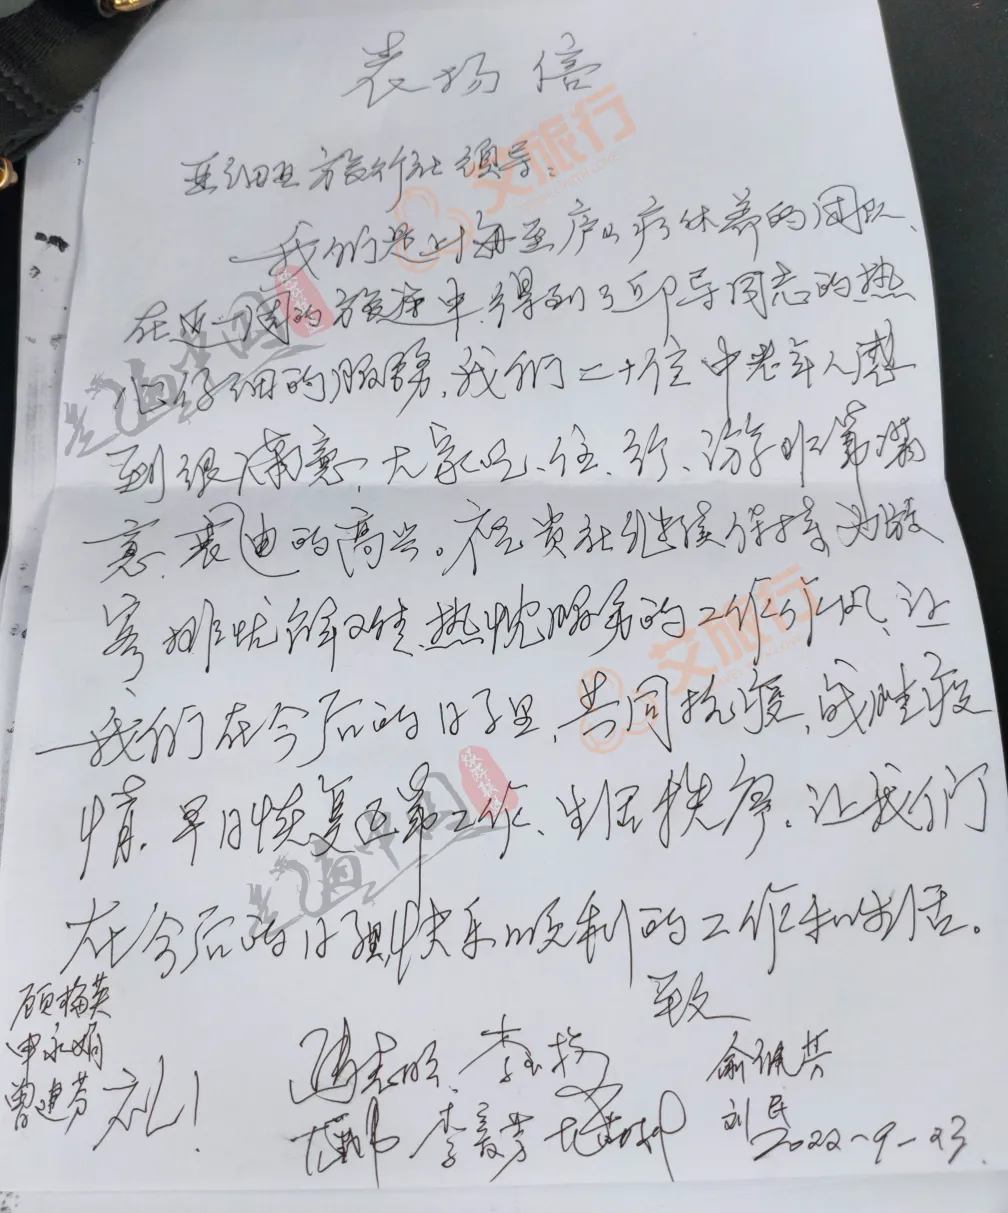 表扬信
亚细亚旅行社领导:
我们是上海至庐山疗休养的团队、
在近一周的旅途中,得到了邱导同志的热
心仔细的服务,我们二十位中老年人感
到很满意,大家吃、住、行、游学非常满
意,衷心的高兴。祝贵社继续保持为旅
客排忧解难、热忱服务的工作作风、让
我们在今后的日子里,共同抗疫,战胜疫
情,早日恢复正常工作、生活秩序,让我们
在今后的日子里快乐顺利的工作和生活。
致
礼!
顾梅英
申永娟
曾建芬
李
李
刘民
2022-9-23
艾旅行
艾旅行
中国
中国